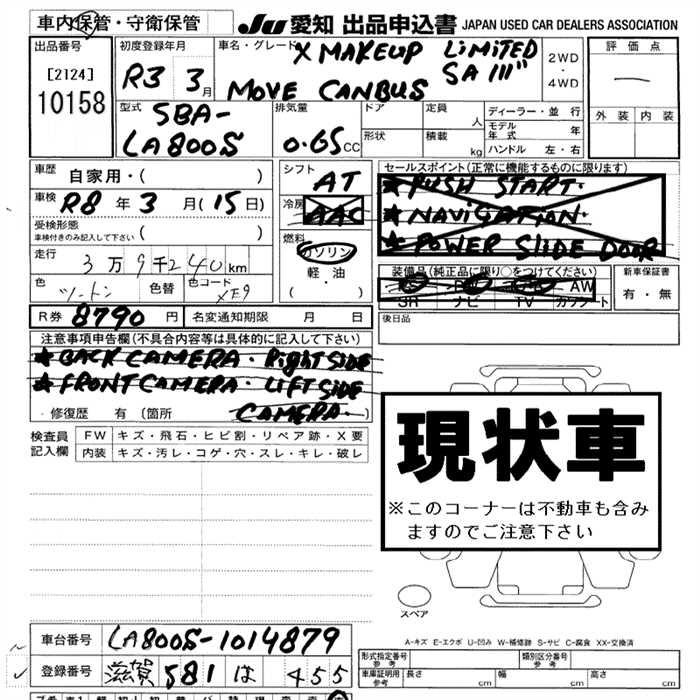 車内保管・守衛保管
JU 愛知 出品申込書 JAPAN USED CAR DEALERS ASSOCIATION
出品番号
[2124]
10158
初度登録年月
R3 3月
車名・グレード
X MAKEUP LIMITED
SA III
MOVE CANBUS
2WD
・
4WD
評価点
外装 内装
型式
5BA-
LA800S
排気量
0.65CC
ドア
形状
定員
人
積載
kg
ディーラー・並行
モデル年式 年
ハンドル 左・右
車歴
自家用・( )
車検
R8年3月(15日)
受検形態
車検付きのみ記入して下さい ( )
走行
3万9千240km
色
ツートン
色替
色コード
XE9
シフト
AT
冷房
AAC
燃料
ガソリン
軽油
( ・ )
セールスポイント(正常に機能するものに限ります)
★PUSH START.
★NAVIGATION.
★POWER SLIDE DOOR
装備品(純正品に限り○をつけてください)
AW
SR ナビ TV カワシート
新車保証書
有・無
R券 8790円
名変通知期限 月 日
後日品
注意事項申告欄(不具合内容等は具体的に記入して下さい)
★BACK CAMERA. Right SIDE
★FRONT CAMERA. LIFT SIDE
CAMERA.
・修復歴 有(箇所
検査員記入欄
FW キズ・飛石・ヒビ割・リペア跡・X要
内装 キズ・汚レ・コゲ・穴・スレ・キレ・破レ
現状車
※このコーナーは不動車も含みますのでご注意下さい
スペア
A-キズ E-エクボ U-凹み W-補修跡 S-サビ C-腐食 XX-交換済
車台番号 LA800S-1014879
登録番号 滋賀 581 は 455
形式指定番号
参考
類別区分番号
参考
車庫証明用
参考
長さ cm
幅 cm
高さ cm